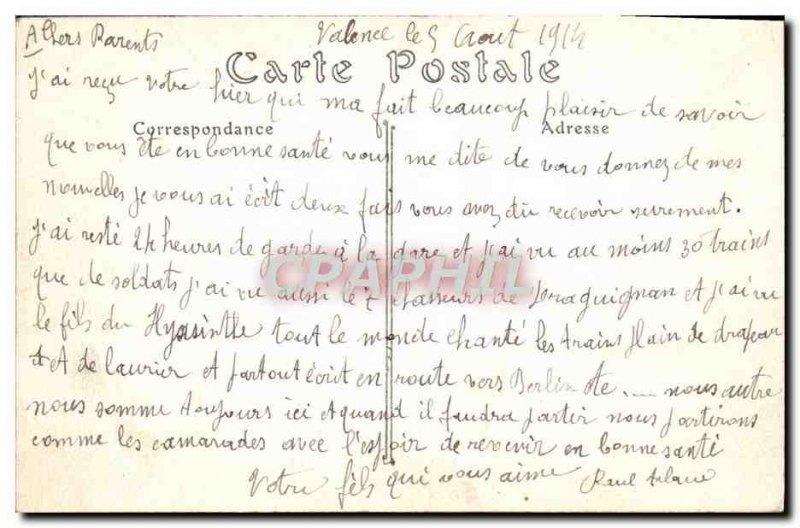 Valence le 5 Aout 1914
Chers Parents
Carte Postale
J'ai reçu votre hier qui ma fait beaucoup plaisir de savoir
Correspondance Adresse
que vous ète en bonne santé vous me dite de vous donnez de mes
nouvelles je vous ai écrit deux fois vous avez du recevoir surement.
J'ai resté 24 heures de garde à la gare et j'ai vu au moins 30 trains
que de soldats j'ai vu aussi le 7 chasseurs de Draguignan et j'ai vu
le fils du Hyasinthe tout le monde chanté les trains plain de drapeau
et de laurier et partout écrit en route vers Berlin ete.... nous autre
nous somme toujours ici et quand il faudra partir nous partirons
comme les camarades avec l'espoir de revenir en bonne santé
Votre fils qui vous aime Paul
CPAPHIL